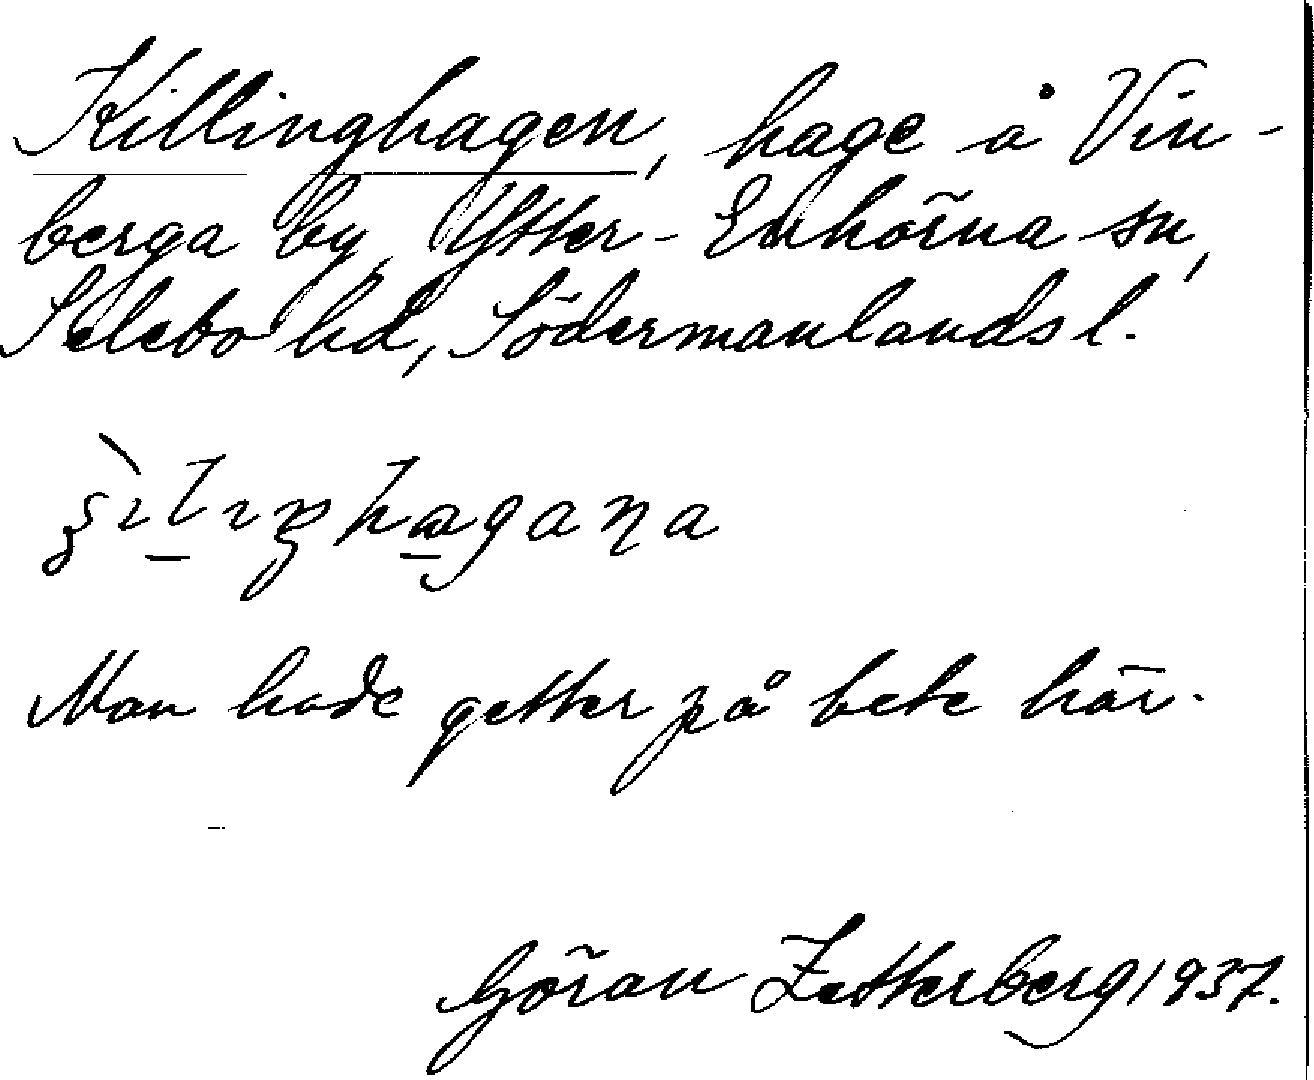 Killinghagen, hage å Vin-
berga by, Ytter-Enhörna sn,
Selebo hd, Södermanlands l.
Man hade getter på bete här.
Göran Zetterberg 1937.